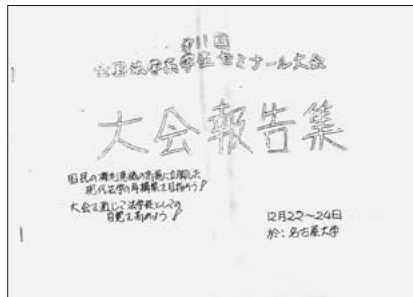 第11回
全国法学系学生ゼミナール大会
大会報告集
国民の権利意識の高揚に立脚した
現代法学の再構築を目指そう!
大会を通じて法学徒としての
自覚を高めよう!
12月22〜24日
於:名古屋大学